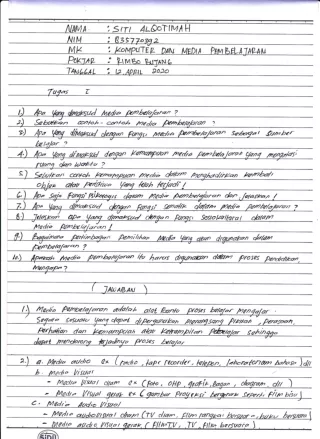 NAMA : SITI ALQOTIMAH
NIM : 835770792
MK : KOMPUTER DAN MEDIA PEMBELAJARAN
POKJAR : RIMBO BUJANG
TANGGAL : 12 APRIL 2020
Tugas I
1.) Apa yang dimaksud media pembelajaran ?
2) Sebutkan contoh-contoh media pembelajaran ?
3) Apa yang dimaksud dengan fungsi media pembelajaran sebagai sumber
belajar ?
4.) Apa yang dimaksud dengan kemampuan media pembelajaran yang mengatasi
ruang dan waktu ?
5) Sebutkan contoh kemampuan media dalam menghadirkan kembali
objek atau peristiwa yang telah terjadi !
6) Apa saja fungsi dalam media pembelajaran dan jelaskan !
7.) Apa yang dimaksud dengan fungsi semantik dalam media pembelajaran ?
8) Jelaskan apa yang dimaksud dengan fungsi sosiokultural dalam
Media pembelajaran !
9) Bagaimana pertimbangan pemilihan Media yang akan digunakan dalam
pembelajaran ?
10) Apakah media pembelajaran itu harus digunakan dalam proses pendidikan,
mengapa ?
( JAWABAN )
1.) Media Pembelajaran adalah alat bantu proses belajar mengajar.
Segala sesuatu yang dapat dipergunakan merangsang pikiran, perasaan,
Perhatian dan kemampuan atau keterampilan Pebelajar sehingga
dapat mendorong terjadinya proses belajar
2.) a. Media audio ex ( radio, tape recorder, telepon, laboratorium bahasa ) dll
b. Media Visual
- Media Visual diam ex ( foto, OHP, grafik, bagan, diagram, dll )
- Media Visual gerak ex ( gambar Proyeksi bergerak seperti film bisu )
c. Media Audio Visual
- Media audiovisual diam ( TV diam, film rangkai bersuara, buku bersuara )
- Media audio visual gerak ( film TV, TV, film bersuara )
SIDU